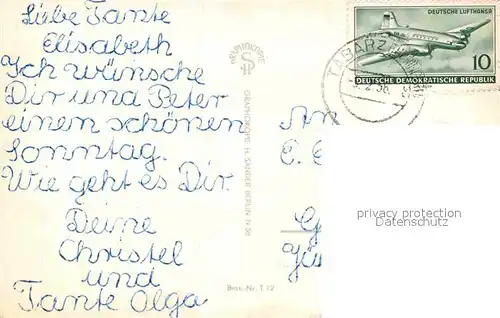 Liebe Tante
Elisabeth
Ich wünsche
Dir und Peter
einen schönen
Sonntag.
Wie geht es Dir.
Deine
Christel
und
Tante Olga
GRAPHOKOPIE H. SANDER BERLIN N 36
Best.-Nr. T 12
DEUTSCHE LUFTHANSA
10
DEUTSCHE DEMOKRATISCHE REPUBLIK
TABARZ
An
privacy protection
Datenschutz